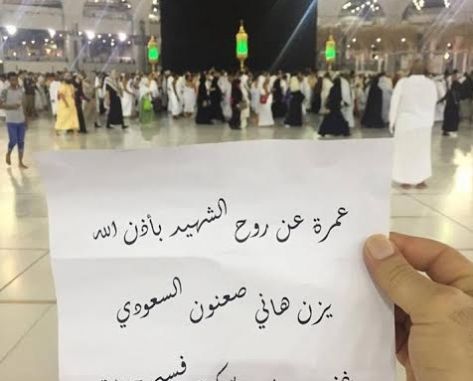 عمرة عن روح الشهيد بأذن الله
يزن هاني صعنون السعودي